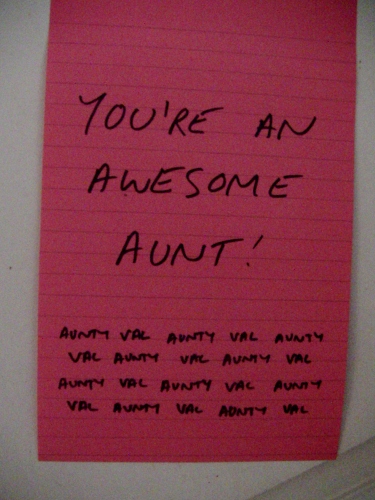 YOU'RE AN
AWESOME
AUNT!
AUNTY VAL AUNTY VAL AUNTY
VAL AUNTY VAL AUNTY VAL
AUNTY VAL AUNTY VAL AUNTY
VAL AUNTY VAL AUNTY VAL